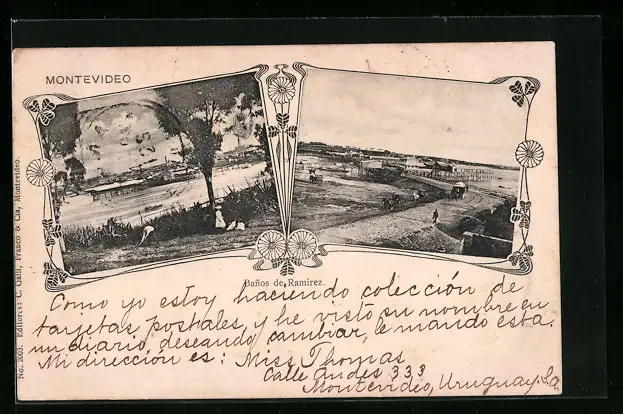 MONTEVIDEO
Baños de Ramirez.
Como yo estoy haciendo colección de
tarjetas postales, y he visto su nombre en
un diario, deseando cambiar, le mando esta.
Mi dirección es: Miss Thomas
Calle Andes 333
Montevideo, Uruguay. S.a.
No. 2003. Editores: C. Galli, Franco & Cia, Montevideo.